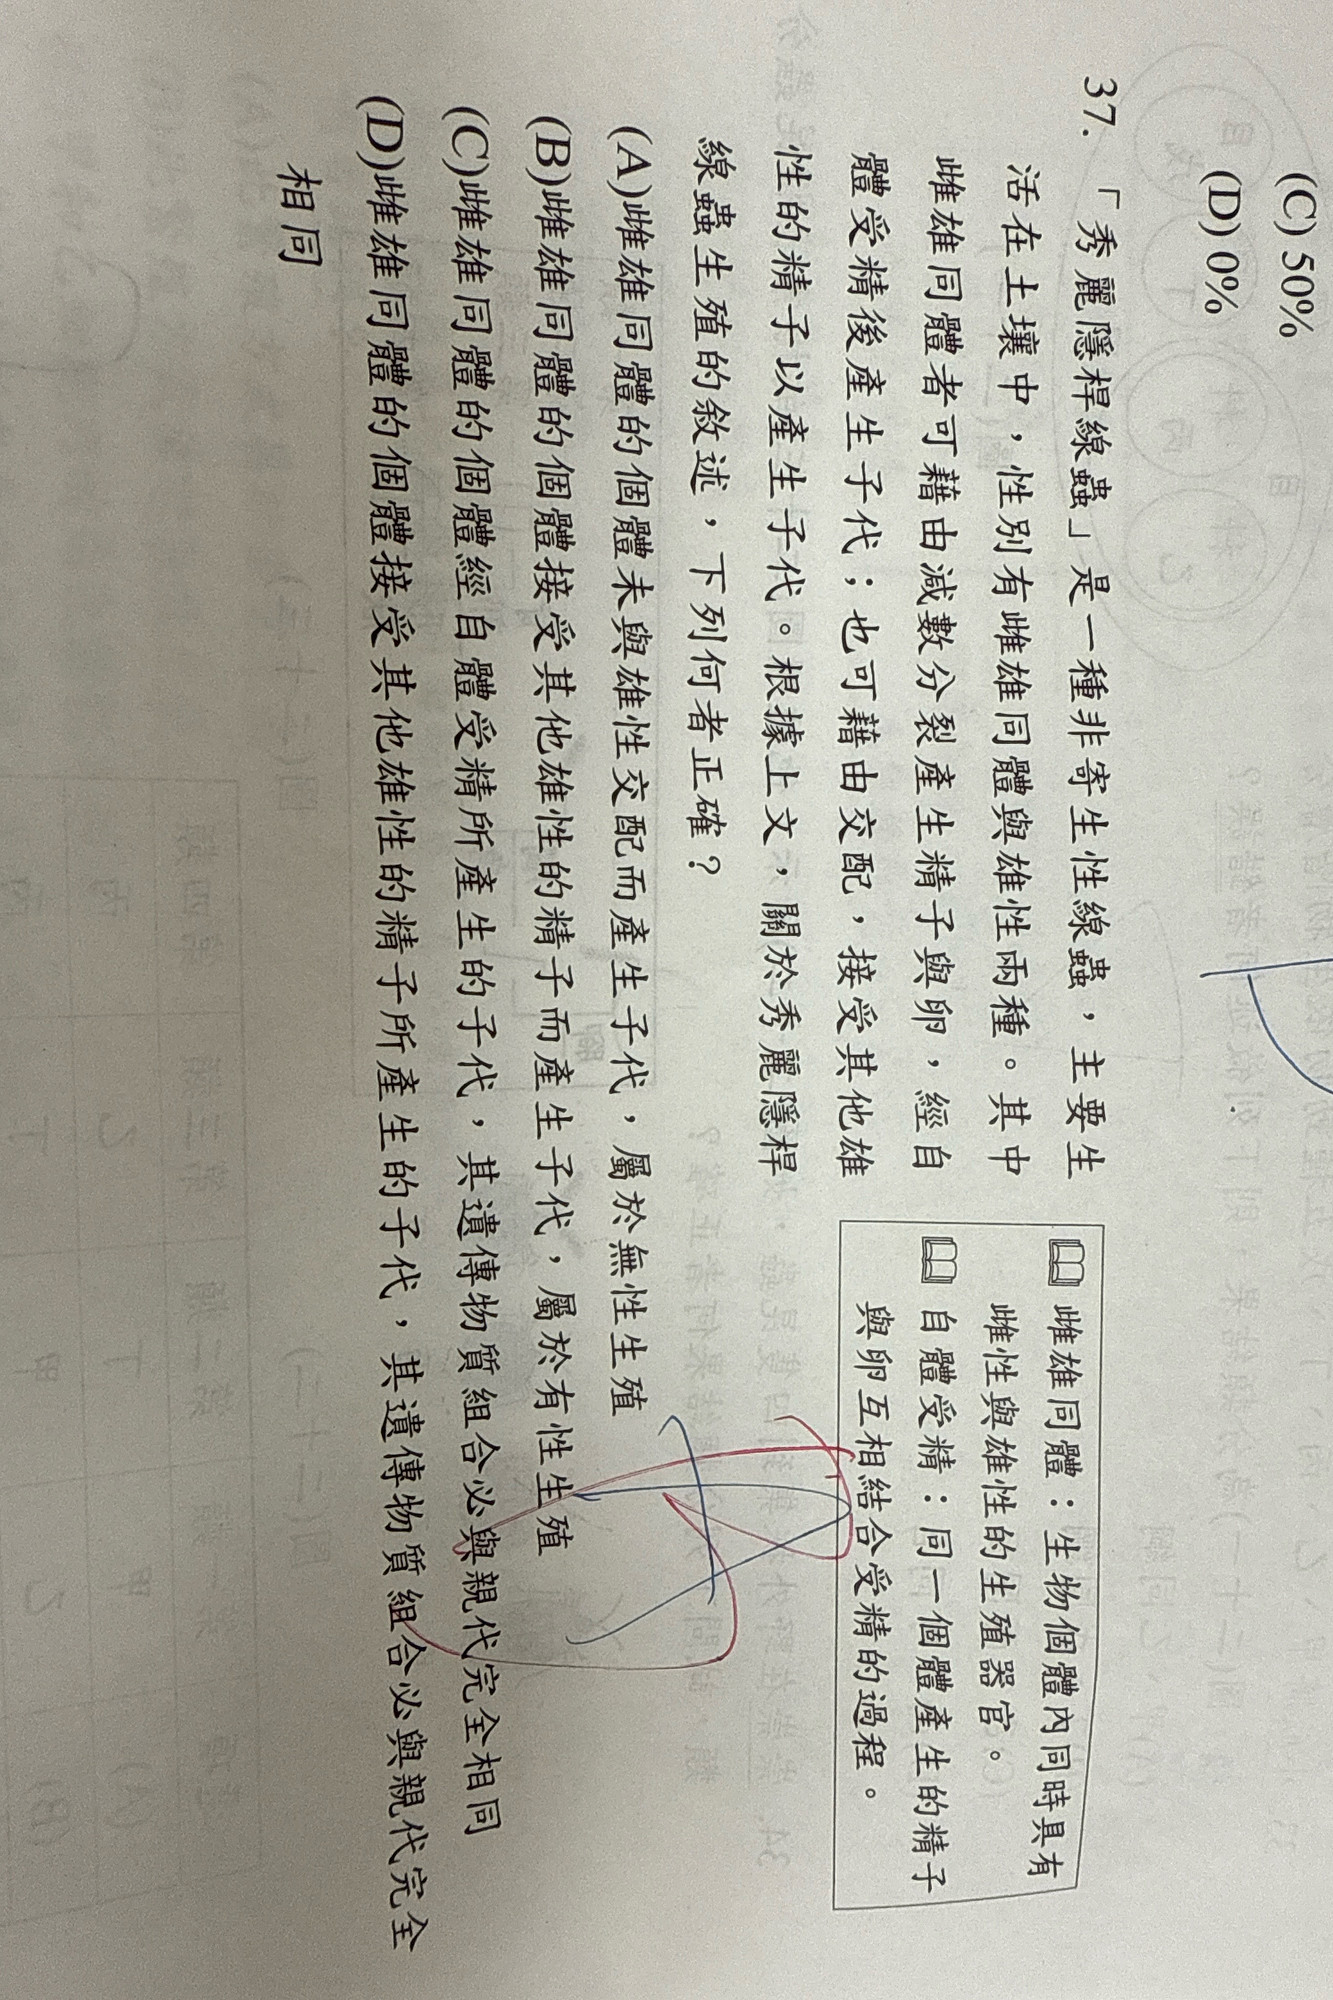 (C) 50%
(D) 0%
37. 「秀麗隱桿線蟲」是一種非寄生性線蟲，主要生
活在土壤中，性別有雌雄同體與雄性兩種。其中
雌雄同體者可藉由減數分裂產生精子與卵，經自
體受精後產生子代；也可藉由交配，接受其他雄
性的精子以產生子代。根據上文，關於秀麗隱桿
線蟲生殖的敘述，下列何者正確？
雌雄同體：生物個體內同時具有
雌性與雄性的生殖器官。
自體受精：同一個體產生的精子
與卵互相結合受精的過程。
(A)雌雄同體的個體未與雄性交配而產生子代，屬於無性生殖
(B)雌雄同體的個體接受其他雄性的精子而產生子代，屬於有性生殖
(C)雌雄同體的個體經自體受精所產生的子代，其遺傳物質組合必與親代完全相同
(D)雌雄同體的個體接受其他雄性的精子所產生的子代，其遺傳物質組合必與親代完全
相同